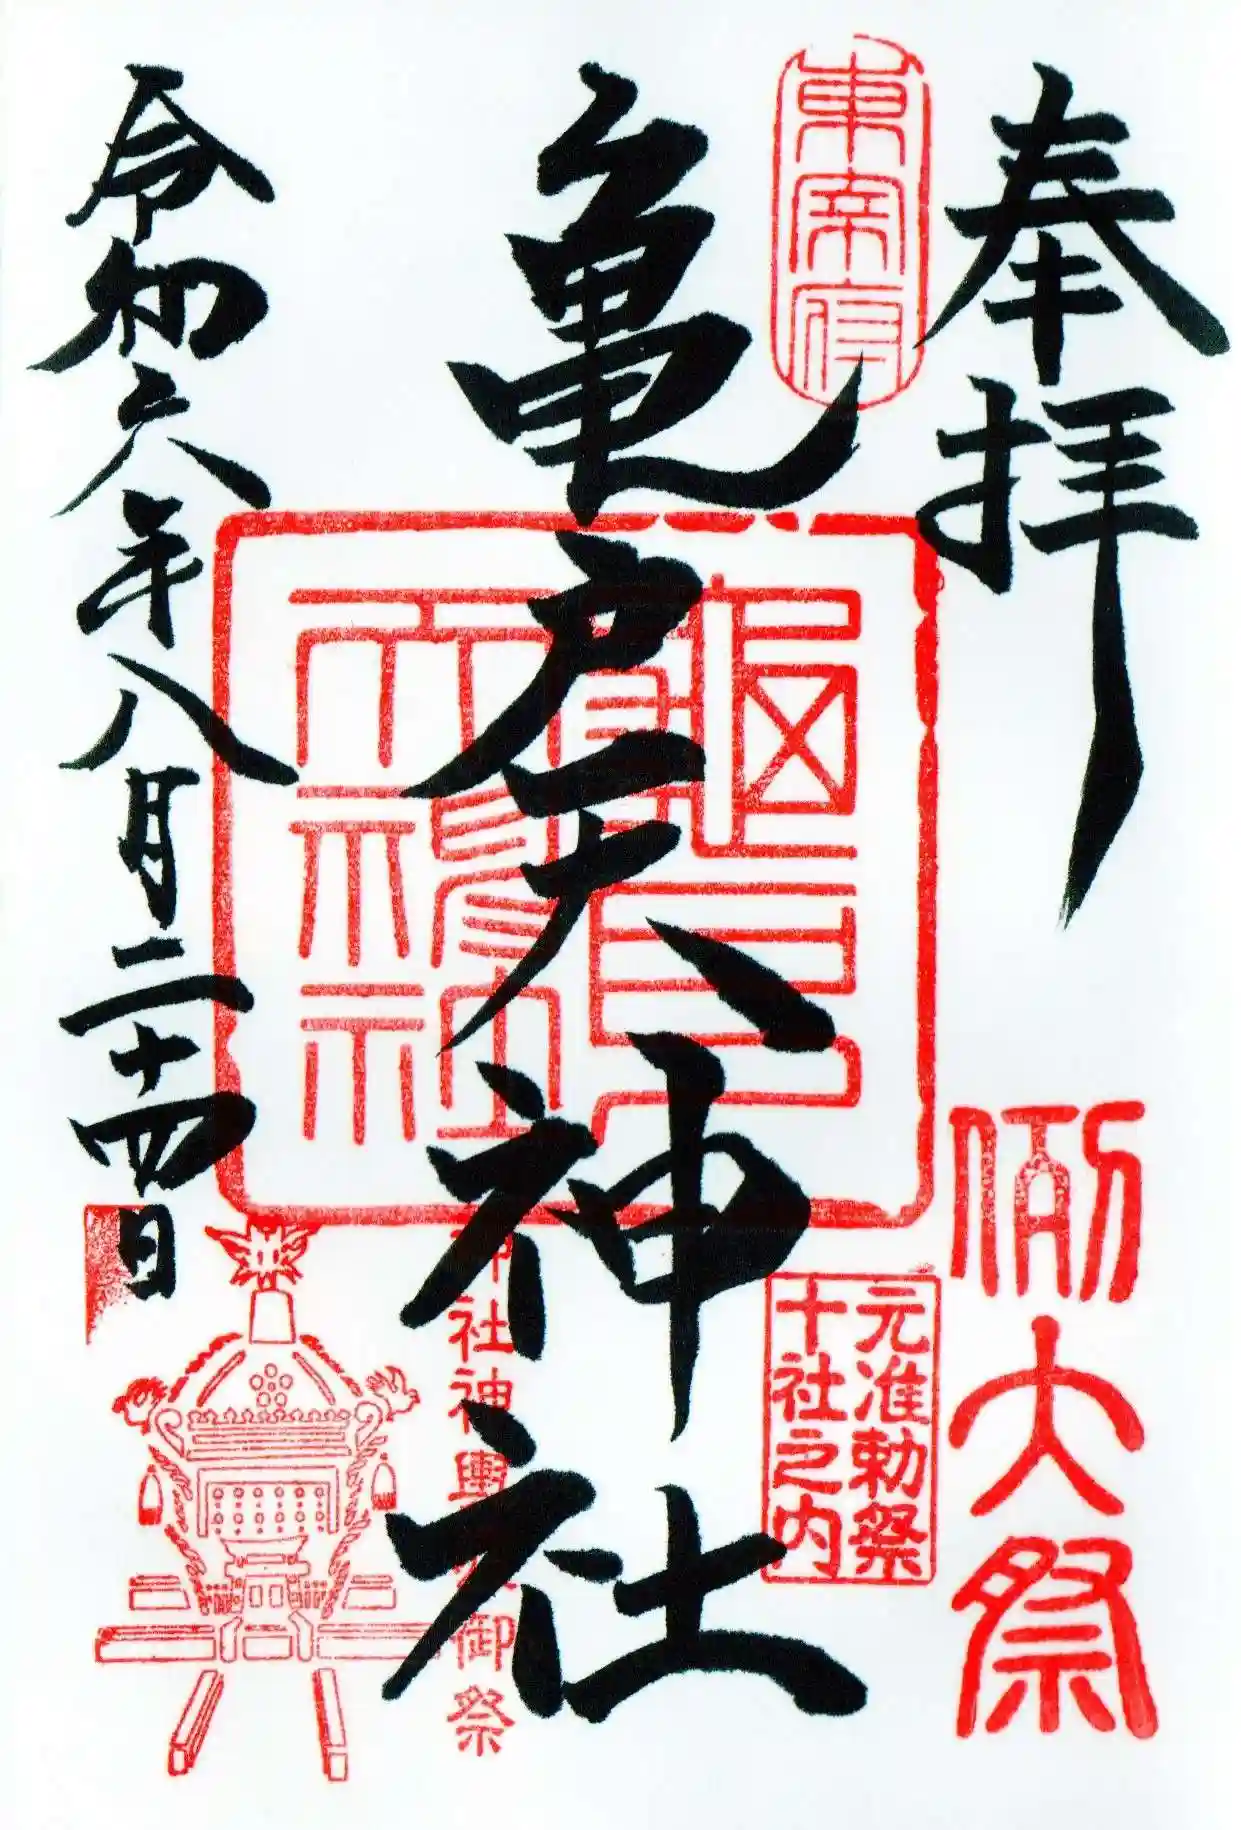 奉拝
東宰府
例大祭
元准勅祭
十社之内
亀戸天神社
龜戸
天神社
社神輿
御祭
令和六年八月二十四日